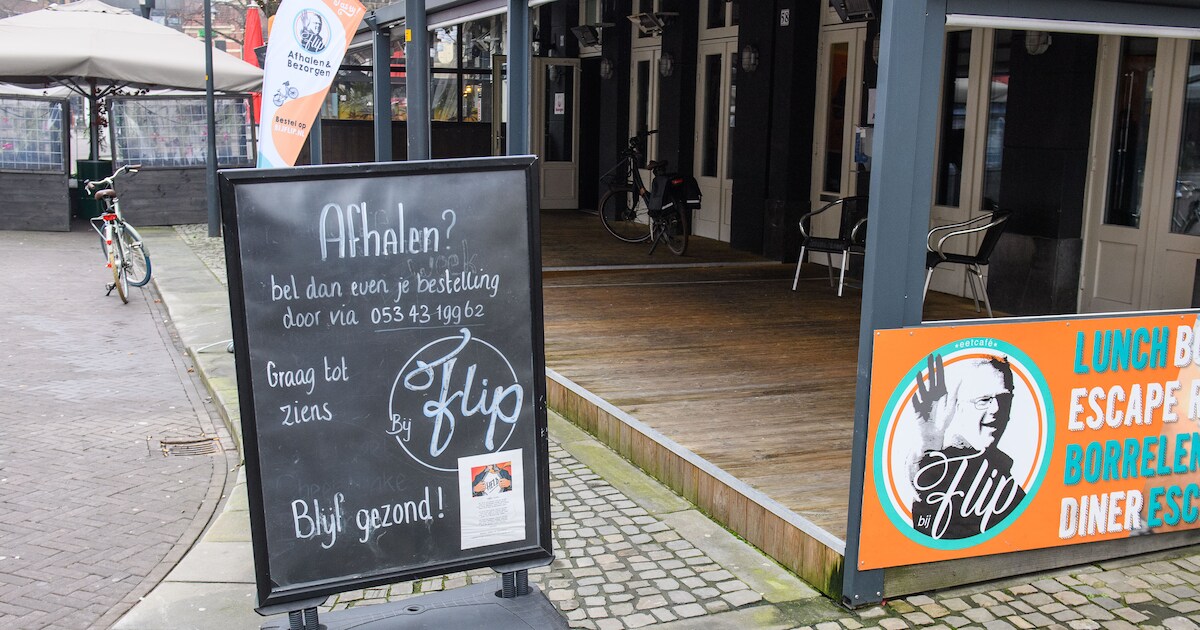 Flip
Afhalen &
Bezorgen
Bestel op
58
Afhalen?
week
bel dan even je bestelling
door via 053 43 199 62
Graag tot
ziens
Bij Flip
Blijf gezond!
•eetcafé•
bij Flip
LUNCH BO
ESCAPE R
BORRELEN
DINER ESC